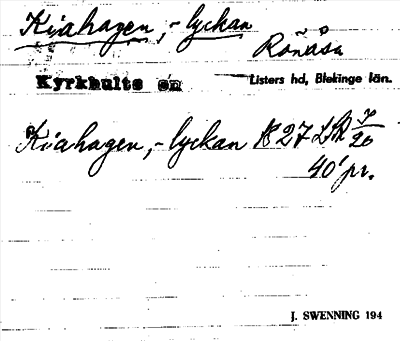 Kiahagen, - lyckan
Ronåsa
Kyrkhults sn Listers hd, Blekinge län.
Kiahagen, - lyckan 27
40' pr.
J. SWENNING 194